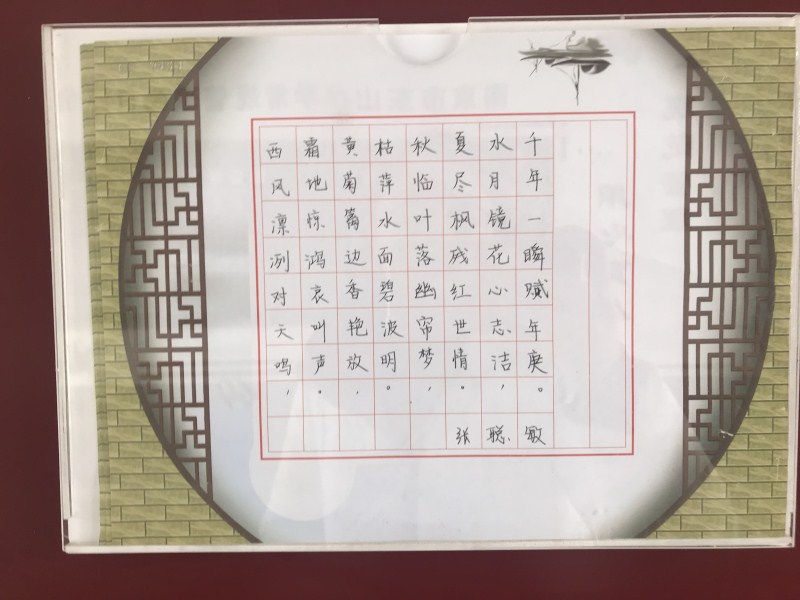 西风凛冽对天鸣，
霜地惊鸿哀叫声。
黄菊篱边香艳放，
枯萍水面碧波明。
秋临叶落幽帘梦，
夏尽枫残红世情。
水月镜花心志洁，
千年一瞬赋年庚。
张聪敏